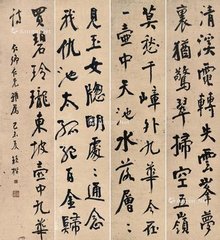 清溪電轉失雲峯夢
裏猶驚翠掃空五嶺
莫愁千嶂外九華今在
一壺中天池水落層々
見玉女窻明處々通念
我仇池太孤絕百金歸
買碧玲瓏東坡壺中九華
詩